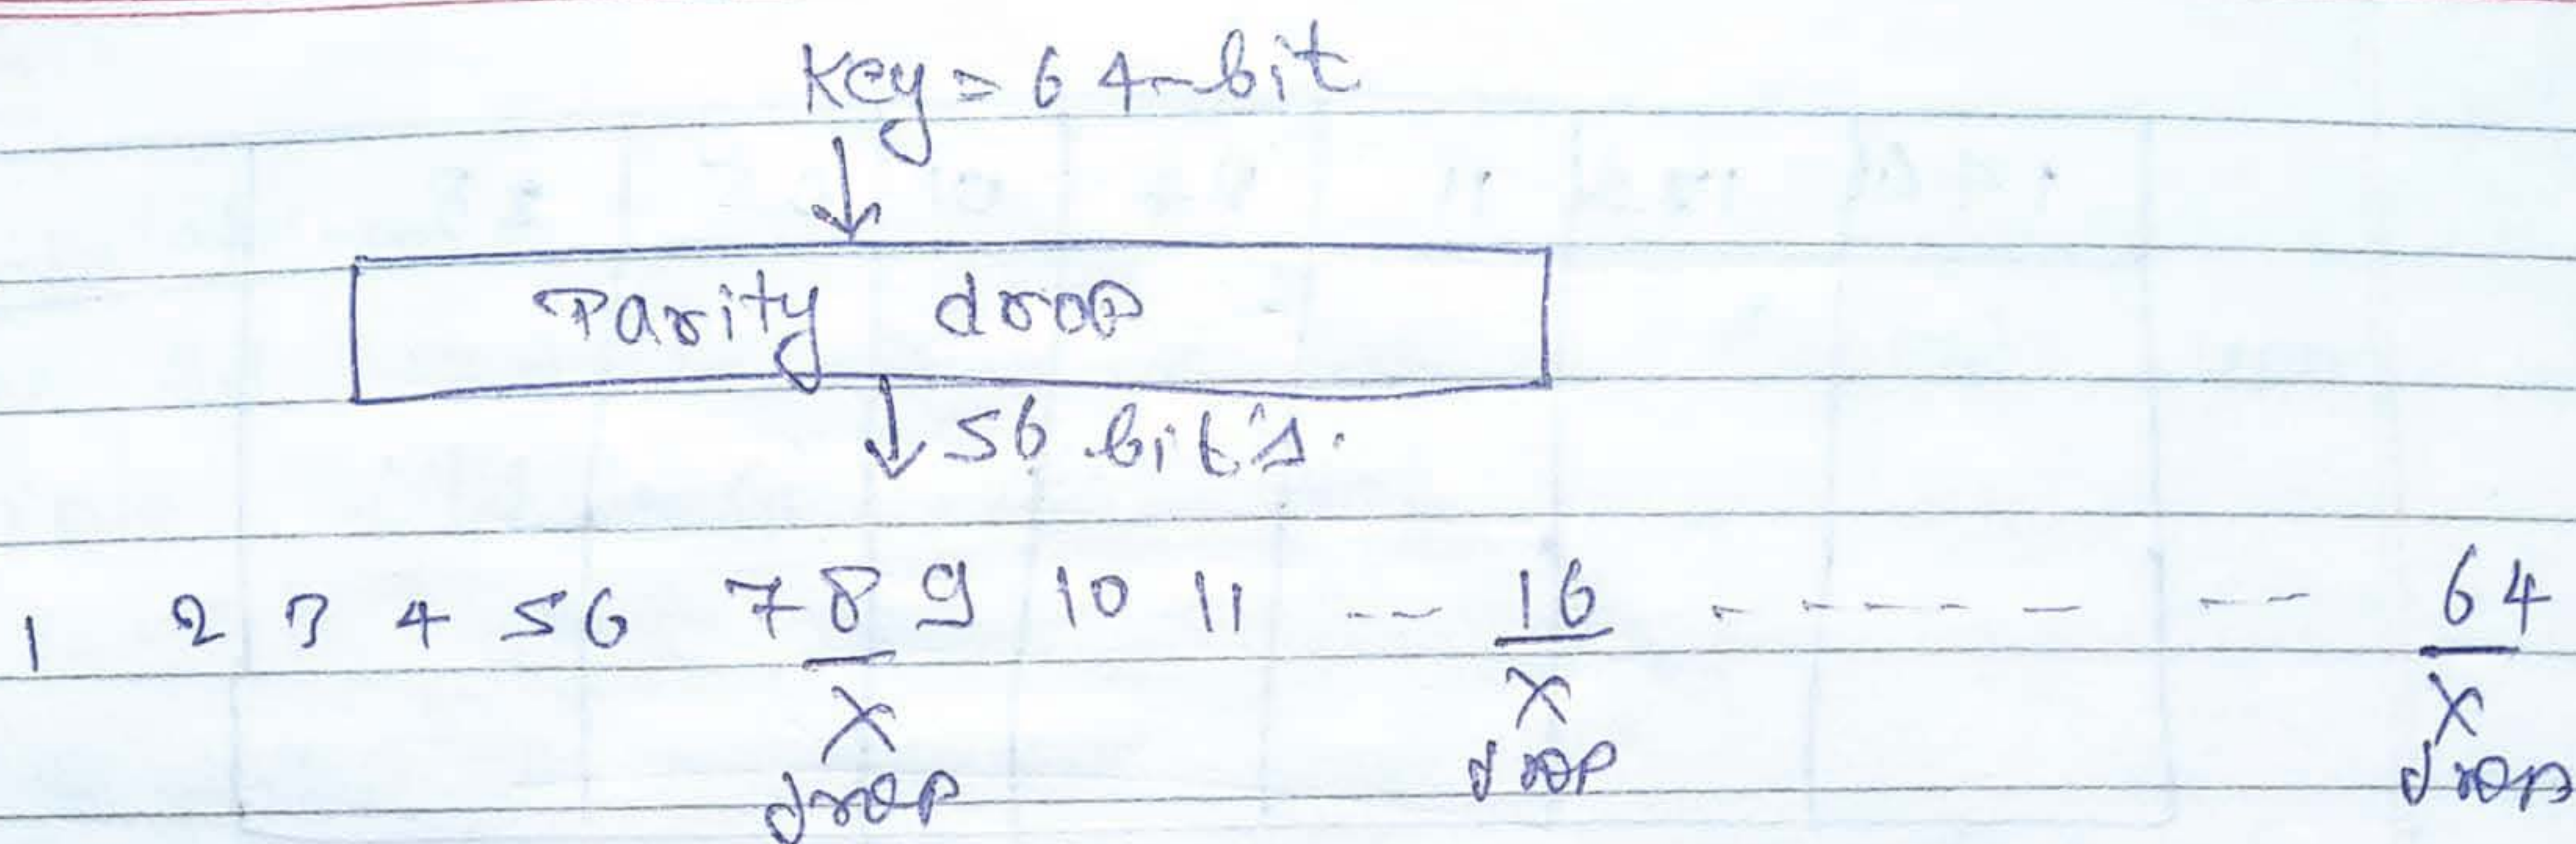 Key = 64-bit
Parity drop
56 bit's.
1 2 3 4 5 6 7 8 9 10 11 --- 16 - - - - - - --- 64
X X X
drop drop drop